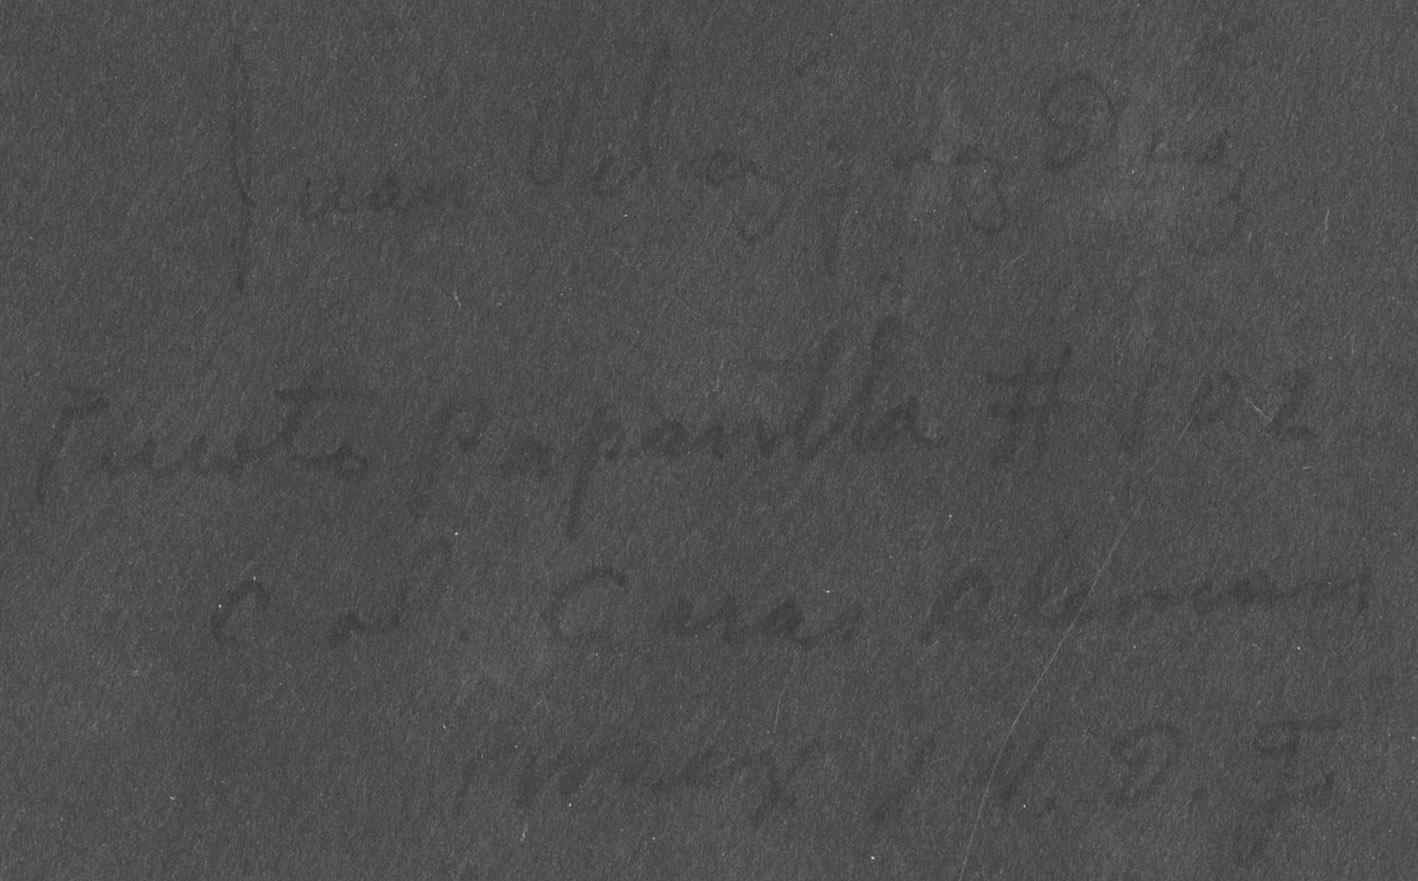 Juan Velazquez Diaz
Puerto Papantla # 102
Col. Casas Aleman
Mex, 14. D. F.